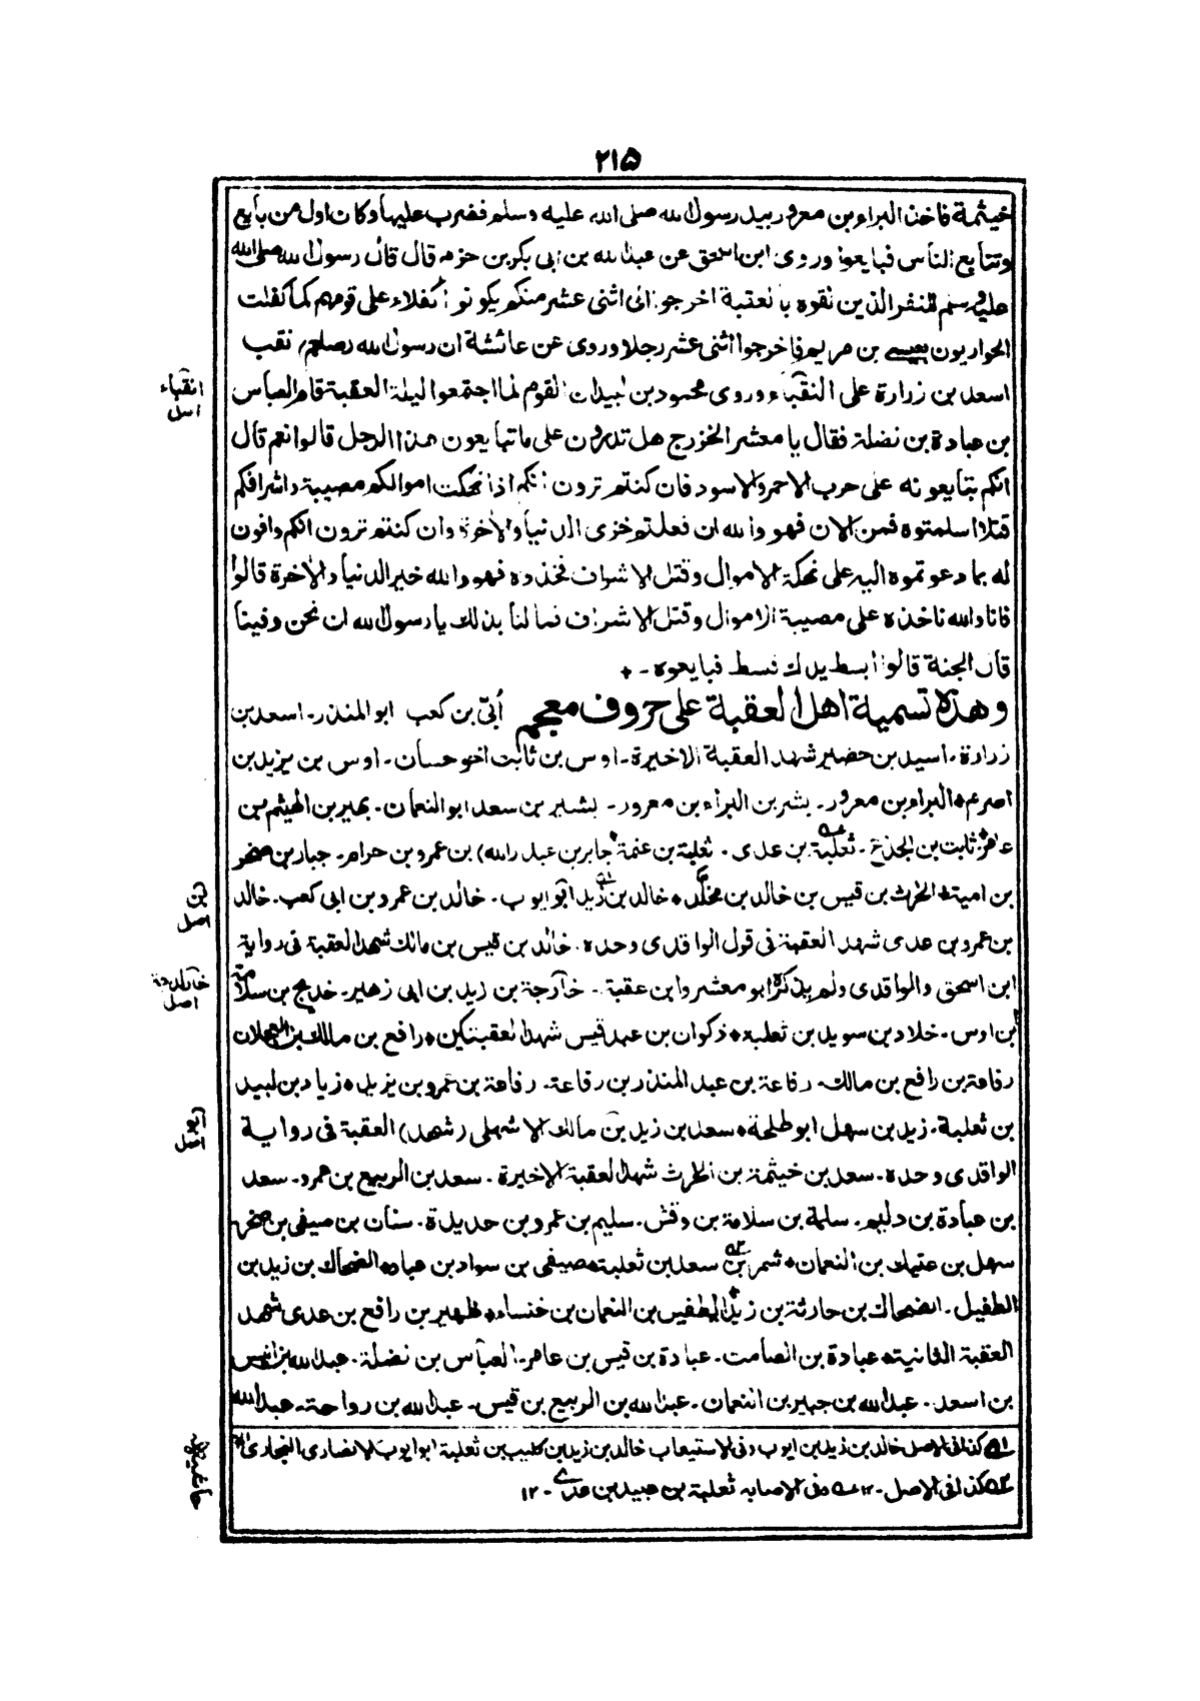 ٢١۵
خيثمة فاخذ البراء بن معرور بيد رسول الله صلى الله عليه وسلم فضرب عليها وكان اول من بايع
وتتابع الناس فبايعوا وروى ابن اسحق عن عبد الله بن ابى بكر بن حزم قال قال رسول الله صلى الله
عليه وسلم للنفر الذين لقوه بالعقبة اخرجوا الى اثنى عشر منكم يكونوا كفلاء على قومهم كما كفلت
الحواريون بعيسى بن مريم فاخرجوا اثنى عشر رجلا وروى عن عائشة ان رسول الله (صلعم) نقب
اسعد بن زرارة على النقباء وروى محمود بن لبيد ان القوم لما اجتمعوا ليلة العقبة قام العباس
النقباء
اصل
بن عبادة بن نضلة فقال يا معشر الخزرج هل تدرون على ما تبايعون هذا الرجل قالوا نعم قال
انكم تبايعونه على حرب الاحمر والاسود فان كنتم ترون انكم اذا نهكت اموالكم مصيبة واشرافكم
قتلا اسلمتوه فمن الان فهو والله ان فعلتم خزى الدنيا والاخرة وان كنتم ترون انكم وافون
له بما دعوتموه اليه على نهكة الاموال وقتل الاشراف فخذوه فهو والله خير الدنيا والاخرة قالوا
فانا والله ناخذه على مصيبة الاموال وقتل الاشراف فما لنا بذلك يا رسول الله ان نحن وفينا
قال الجنة قالوا ابسط يدك فبسط فبايعوه ـ ٭
وهذه تسمية اهل العقبة على حروف معجم أبىّ بن كعب ابو المنذر۔ اسعد بن
زرارة۔ اسيد بن حضير شهد العقبة الاخيرة۔ اوس بن ثابت اخو حسان۔ اوس بن يزيد بن
اصرم٭ البراء بن معرور۔ بشر بن البراء بن معرور۔ بشير بن سعد ابو النعمان۔ بهير بن الهيثم بن
عامر٭ ثابت بن الجذع۔ ثعلبة بن عدى۔ ثعلبة بن عنمة٭ جابر بن عبد (الله) بن عمرو بن حرام۔ جبار بن صخر
بن امية٭ الحرث بن قيس بن خالد بن مخلد٭ خالد بن زيد ابو ايوب۔ خالد بن عمرو بن ابى كعب۔ خالد
بن
اصل
بن عمرو بن عدى شهد العقبة فى قول الواقدى وحده۔ خالد بن قيس بن مالك شهد العقبة فى رواية
ابن اسحق والواقدى ولم يذكره ابو معشر وابن عقبة۔ خارجة بن زيد بن ابى زهير۔ خديج بن سلامة
اصل
بن اوس۔ خلاد بن سويد بن ثعلبة٭ ذكوان بن عبد قيس شهد العقبتين٭ رافع بن مالك بن العجلان
رفاعة بن رافع بن مالك۔ رفاعة بن عبد المنذر بن رفاعة۔ رفاعة بن عمرو بن يزيد٭ زياد بن لبيد
بن ثعلبة۔ زيد بن سهل ابو طلحة٭ سعد بن زيد بن مالك الاشهلى (شهد) العقبة فى رواية
ابو
اصل
الواقدى وحده۔ سعد بن خيثمة بن الحرث شهد العقبة الاخيرة۔ سعد بن الربيع بن عمرو۔ سعد
بن عبادة بن دليم۔ سلمة بن سلامة بن وقش۔ سليم بن عمرو بن حديدة۔ سنان بن صيفى بن صخر
سهل بن عتيك بن النعمان٭ شمر بن سعد بن ثعلبة٭ صيفى بن سواد بن عباد٭ الضحاك بن زيد بن
الطفيل۔ الضحاك بن حارثة بن زيد٭ الطفيل بن النعمان بن خنساء٭ ظهير بن رافع بن عدى شهد
العقبة الثانية٭ عبادة بن الصامت۔ عبادة بن قيس بن عامر۔ العباس بن نضلة۔ عبد الله بن انيس
بن اسعد۔ عبد الله بن جبير بن النعمان۔ عبد الله بن الربيع بن قيس۔ عبد الله بن رواحة۔ عبد الله
ا؎ كذا فى الاصل خالد بن زيد بن ايوب وفى الاستيعاب خالد بن زيد بن كليب بن ثعلبة ابو ايوب الانصارى النجارى
٢؎ كذا فى الاصل۔ ١٢ ؎ وفى الاصابه ثعلبة بن عبيد بن عدى۔ ١٢
حاشيه